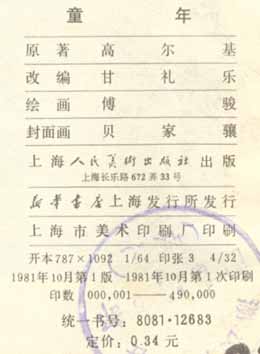 童 年
原 著 高 尔 基
改 编 甘 礼 乐
绘 画 傅 骏
封面画 贝 家 骧
上海人民美术出版社 出版
上海长乐路 672 弄 33 号
新华书店上海发行所发行
上海市美术印刷厂印刷
开本 787×1092 1/64 印张 3 4/32
1981年10月第1版 1981年10月第1次印刷
印数 000,001——490,000
统一书号: 8081·12683
定价: 0.34 元